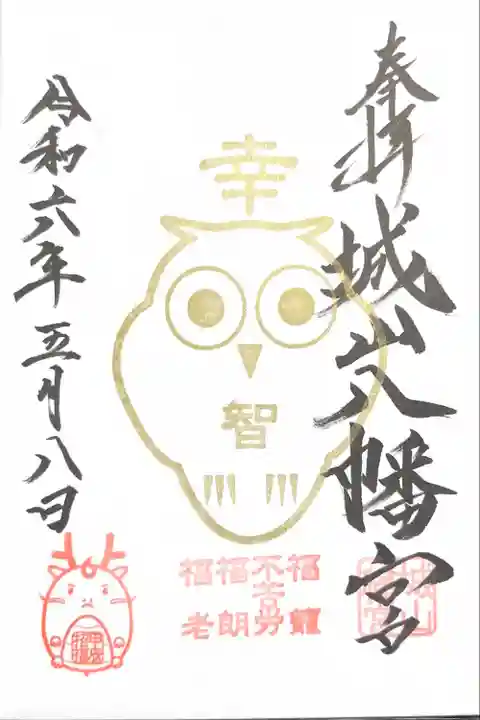 奉拝
城山八幡宮
幸
智
福 不 福 福
籠 苦労 朗 老
令和六年五月八日